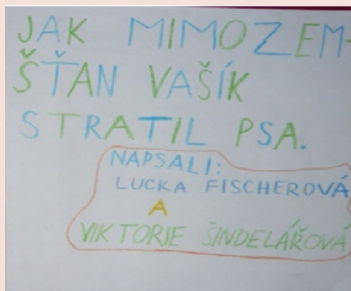 JAK MIMOZEM-
ŠŤAN VAŠÍK
STRATIL PSA.
NAPSALI:
LUCKA FISCHEROVÁ
A
VIKTORIE ŠINDELÁŘOVÁ